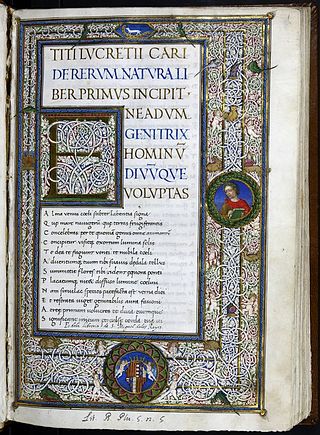 TITI LVCRETII CARI
DE RERVM NATVRA LI
BER PRIMVS INCIPIT
ENEADVM
GENITRIX
HOMINV̄
DIVV̄QVE
VOLVPTAS
Alma venus cœli subter labentia signa
Quę mare navigerū quę terras frugiferentis
Concelebras per te quoniā genus omne animantū
Concipitur visitque exortum lumina solis
Te dea te fugiunt venti te nubila cœli
Adventumque tuum tibi suavis dędala tellus
Summittit flores tibi rident ęquora ponti
Placatumque nitet diffuso lumine cœlum
Nam simulac species patefacta est verna diei
Et reserata viget genitabilis aura favoni
Aerię primum volucres te diva tuumque
Significant initum perculsę corda tua vi